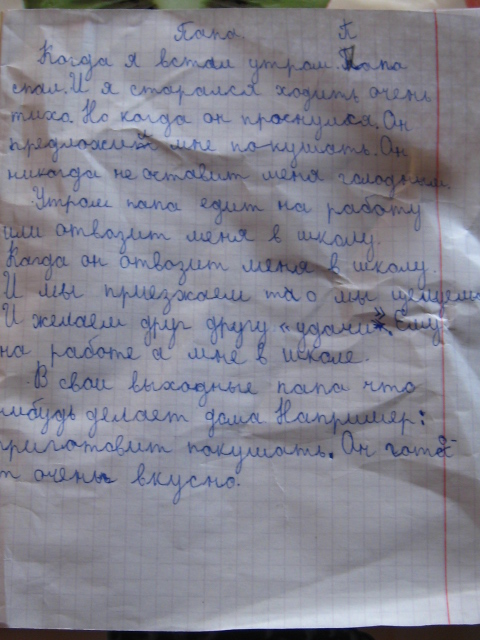 Папа. П
Когда я встал утром. Папа
спал. И я старался ходить очень
тиха. Но когда он проснулся. Он
предложил мне покушать. Он
никогда не оставит меня голодным.
Утром папа едит на работу
или отвозит меня в школу.
Кагда он отвозит меня в школу.
И мы приезжаем то мы целуемся
И желаем друг другу «удачи». Ему
на работе а мне в школе.
В свои выходные папа что
нибудь делает дома Например:
приготовит покушать. Он гото-
т очень вкусно.